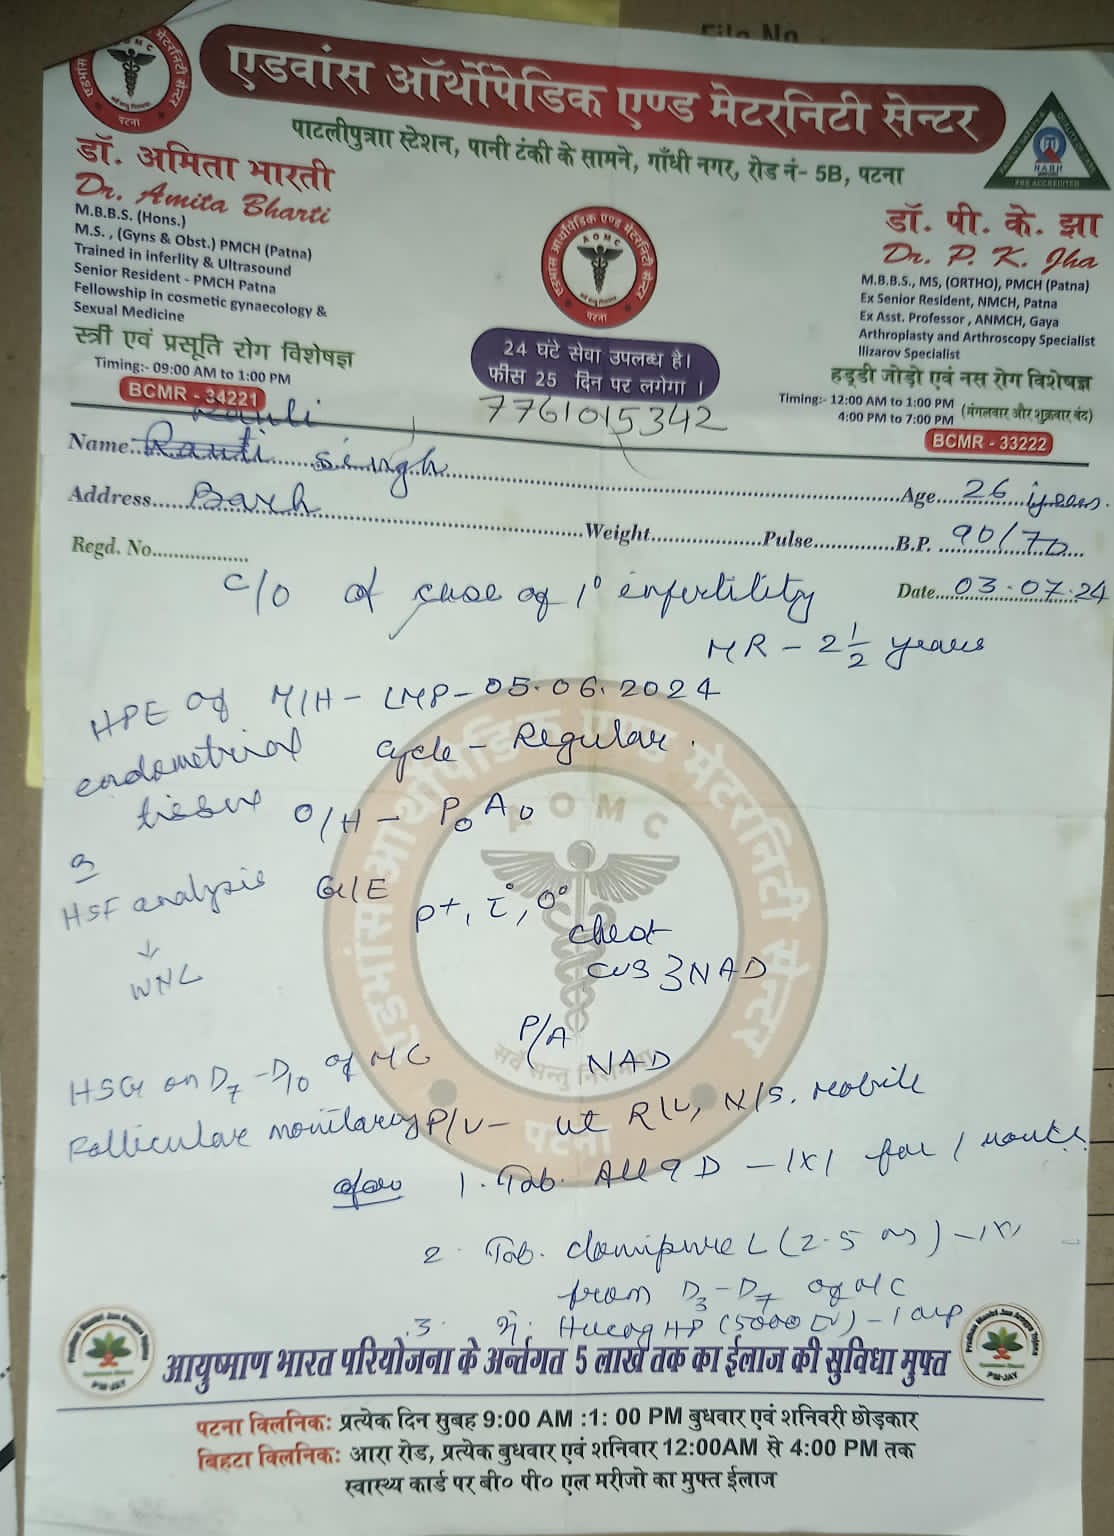 File No
एडवांस ऑर्थोपेडिक एण्ड मेटरनिटी सेन्टर
पाटलीपुत्राा स्टेशन, पानी टंकी के सामने, गाँधी नगर, रोड नं- 5B, पटना
डॉ. अमिता भारती
Dr. Amita Bharti
M.B.B.S. (Hons.)
M.S. , (Gyns & Obst.) PMCH (Patna)
Trained in inferlity & Ultrasound
Senior Resident - PMCH Patna
Fellowship in cosmetic gynaecology &
Sexual Medicine
स्त्री एवं प्रसूति रोग विशेषज्ञ
Timing:- 09:00 AM to 1:00 PM
BCMR - 34221
AOMC
पटना
24 घंटे सेवा उपलब्ध है।
फीस 25 दिन पर लगेगा ।
7761015342
NABH
PRE ACCREDITED
डॉ. पी. के. झा
Dr. P. K. Jha
M.B.B.S., MS, (ORTHO), PMCH (Patna)
Ex Senior Resident, NMCH, Patna
Ex Asst. Professor , ANMCH, Gaya
Arthroplasty and Arthroscopy Specialist
Ilizarov Specialist
हड्डी जोड़ो एवं नस रोग विशेषज्ञ
Timing:- 12:00 AM to 1:00 PM
4:00 PM to 7:00 PM (मंगलवार और शुक्रवार बंद)
BCMR - 33222
Name Singh Age 26 years.
Address Barh Weight Pulse B.P. 90/70
Regd. No Date 03.07.24
C/O of case of 1° infertility
MR - 2 1/2 years
HPE of M/H - LMP - 05.06.2024
endometrial cycle - Regular.
tissue O/H - P0 A0
HSF analysis G/E P+, I°, O°
↓ chest
WNL CVS } NAD
P/A NAD
HSG on D7-D10 of MC
Follicular monitoring P/V - ut R/V, N/S. mobile
1. Tab. All 9 D - 1x1 for 1 month
2. Tab. Clomipure L (2.5 ) - 1x1
from D3-D7 of MC
3. Hucog HP (5000 IU) - 1 amp
एडवांस ऑर्थोपेडिक एण्ड मेटरनिटी सेन्टर
AOMC
पटना
PM-JAY
आयुष्माण भारत परियोजना के अर्न्तगत 5 लाख तक का ईलाज की सुविधा मुफ्त
PM-JAY
पटना क्लिनिकः प्रत्येक दिन सुबह 9:00 AM :1: 00 PM बुधवार एवं शनिवरी छोड़कार
बिहटा क्लिनिकः आरा रोड, प्रत्येक बुधवार एवं शनिवार 12:00AM से 4:00 PM तक
स्वास्थ्य कार्ड पर बी० पी० एल मरीजो का मुफ्त ईलाज